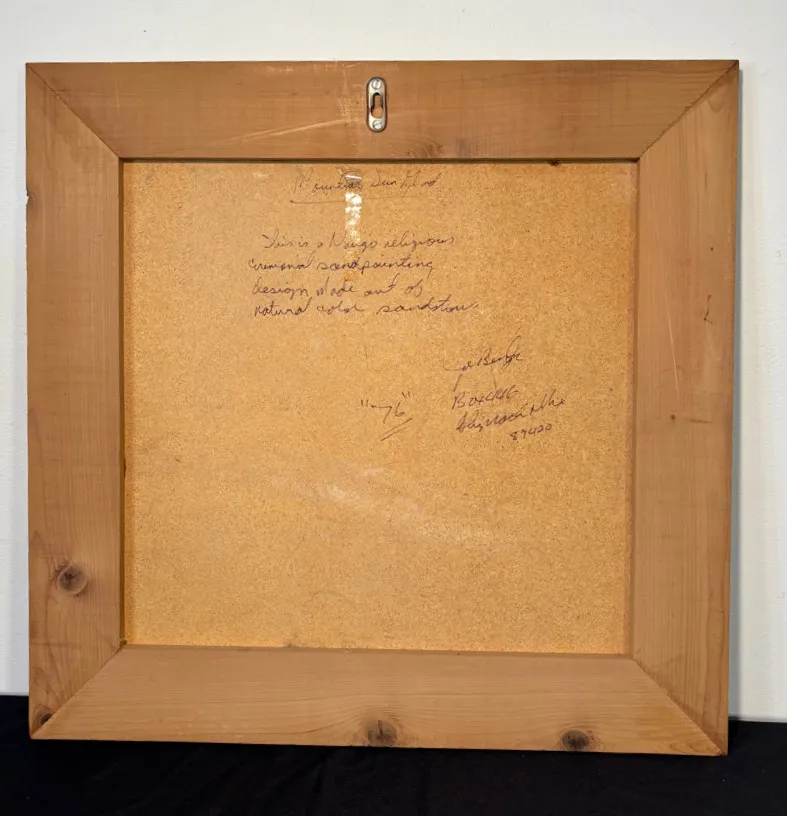 Mountain Sun God
This is a Navajo religious
ceremonial sandpainting
design Made out of
natural color sandstone.
Box
"76"
87420